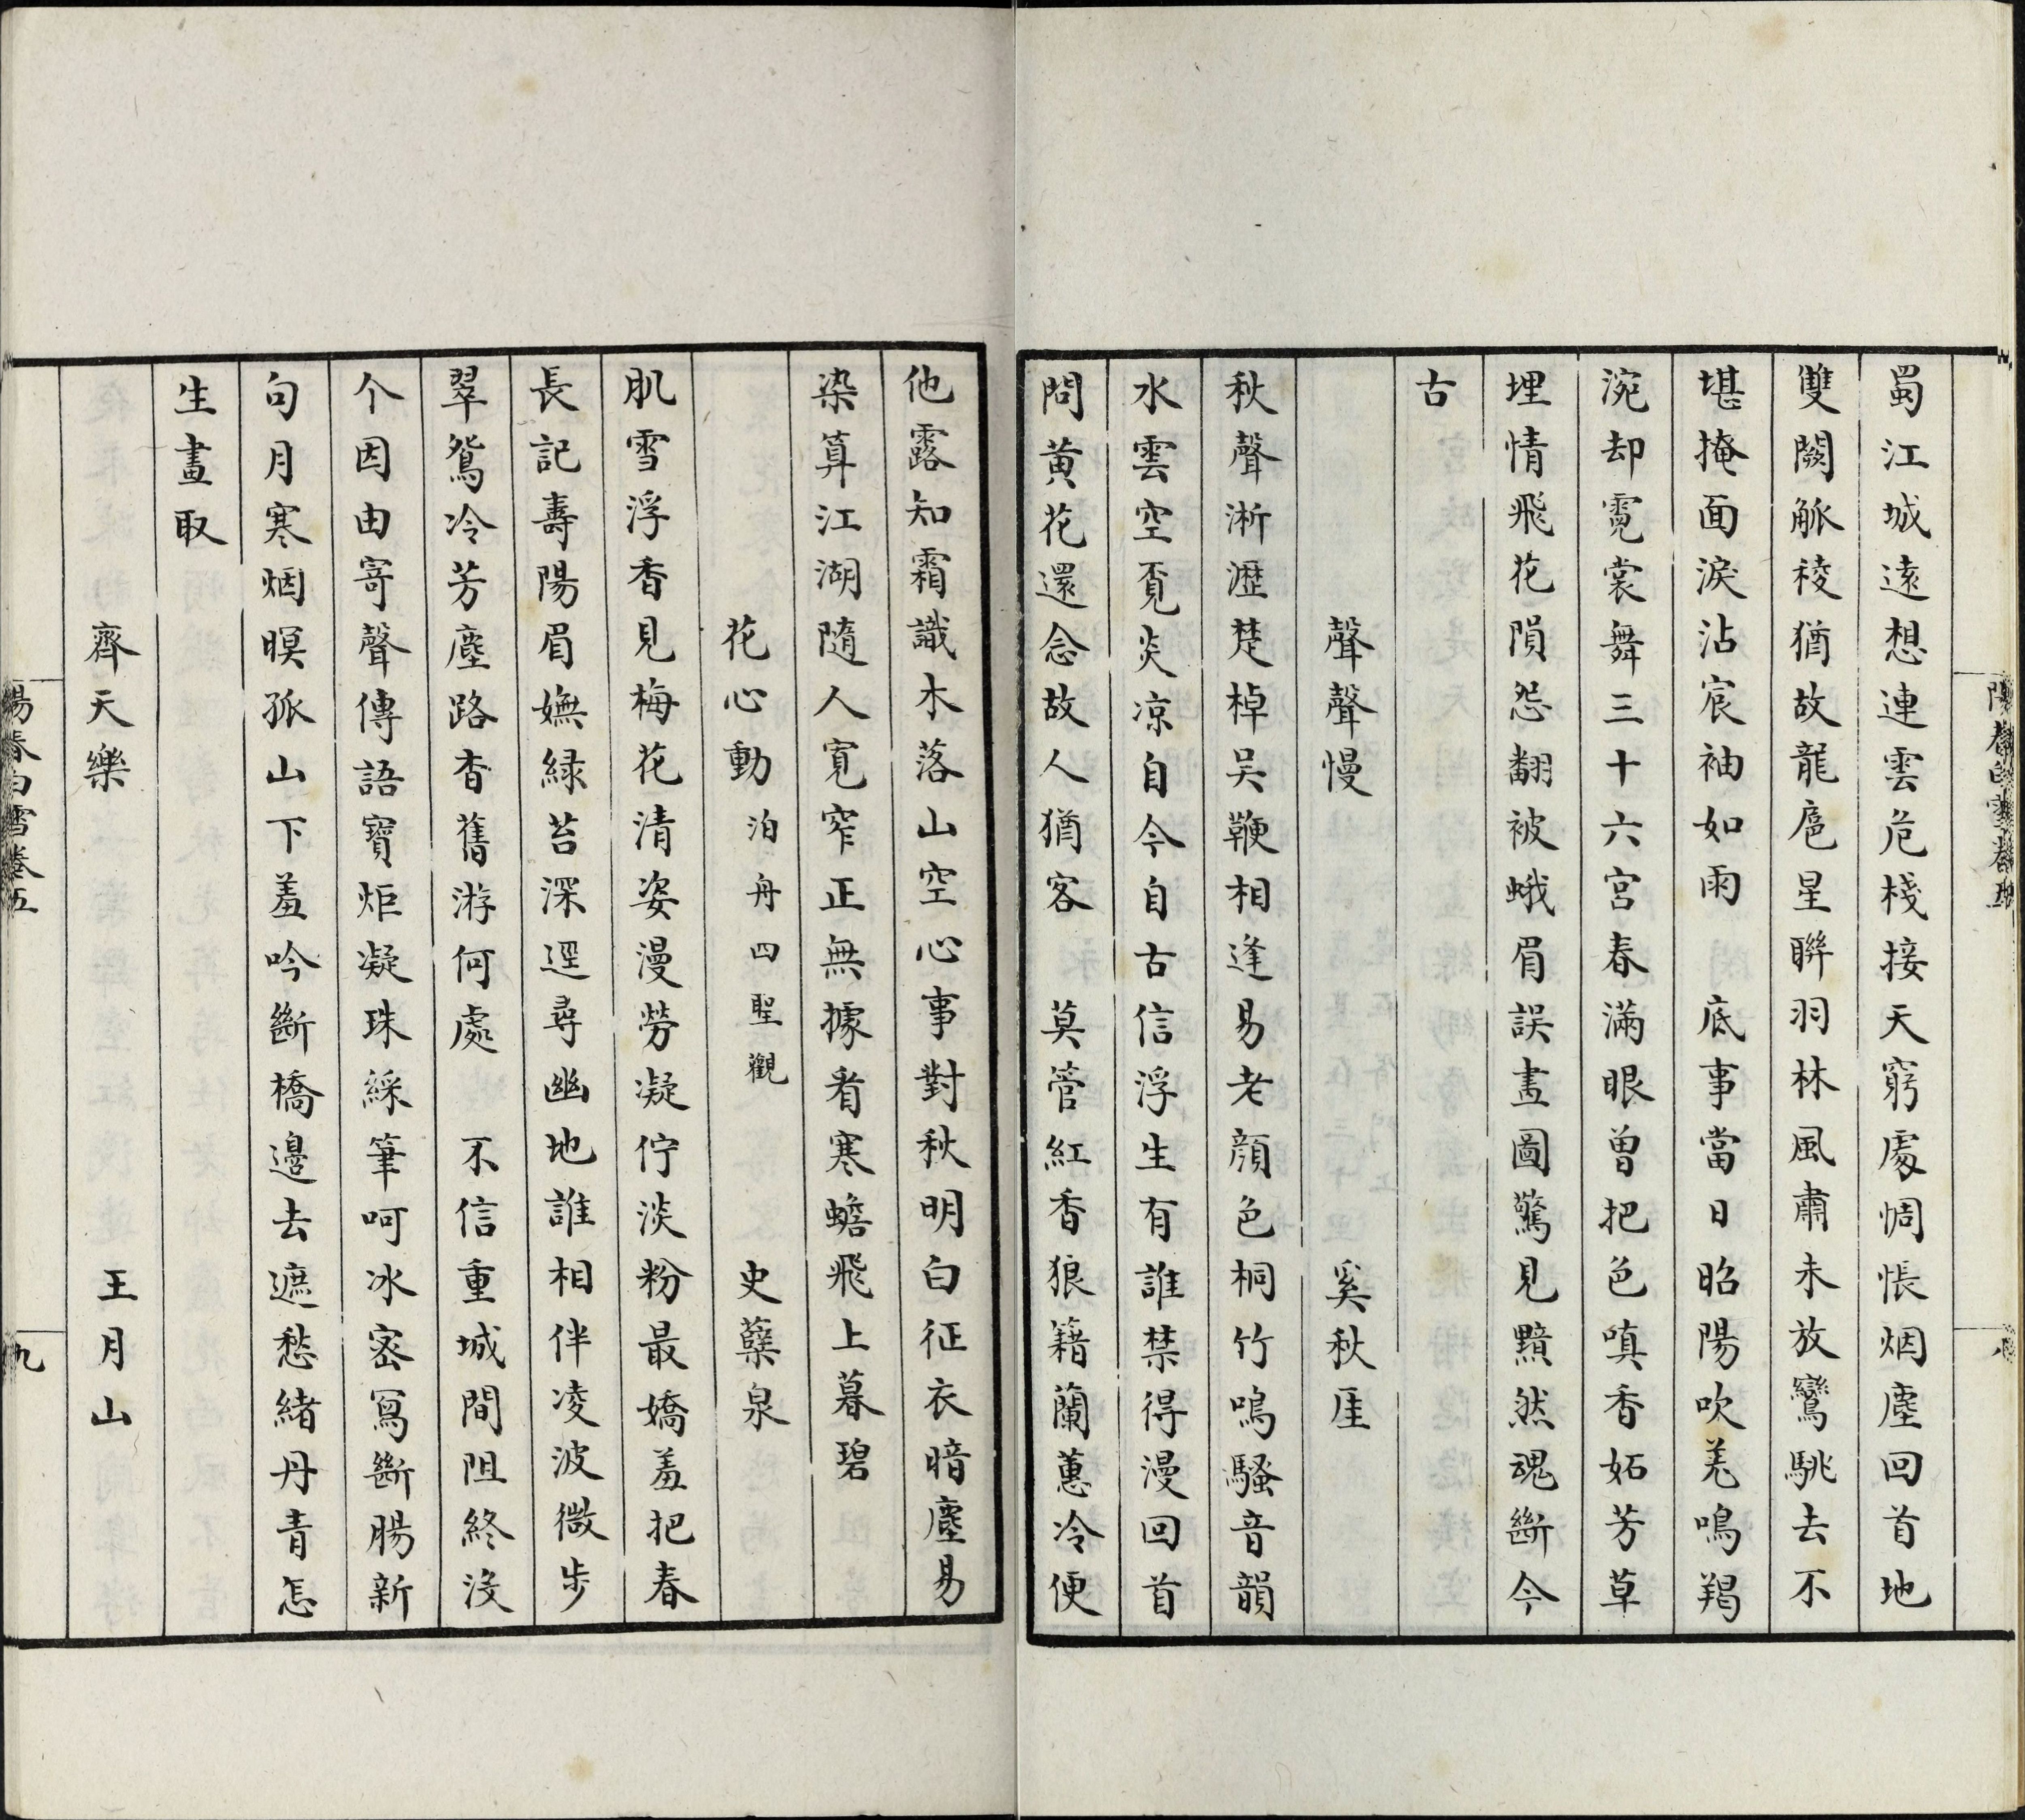 蜀江城遠想連雲危棧接天窮處惆悵烟塵回首地
雙闕觚稜猶故龍扈星聯羽林風肅未放鸞駣去不
堪掩面淚沾宸袖如雨　底事當日昭陽吹羌鳴羯
涴却霓裳舞三十六宮春滿眼曾把色嗔香妬芳草
埋情飛花隕怨翻被蛾眉誤畫圖驚見黯然魂斷今
古
聲聲慢　奚秋厓
秋聲淅瀝楚棹吴鞭相逢易老顔色桐竹鳴騷音韻
水雲空覔炎凉自今自古信浮生有誰禁得漫回首
問黄花還念故人猶客　莫管紅香狼籍蘭蕙冷便
他露知霜識木落山空心事對秋明白征衣暗塵易
染算江湖隨人寬窄正無據看寒蟾飛上暮碧
花心動 泊舟四聖觀　史蘗泉
肌雪浮香見梅花清姿漫勞凝佇淡粉最嬌羞把春
長記壽陽眉嫵緑苔深逕尋幽地誰相伴凌波微步
翠鴛冷芳塵路杳舊游何處　不信重城間阻終没
个因由寄聲傳語寶炬凝珠綵筆呵冰密寫斷腸新
句月寒烟暝孤山下羞吟斷橋邊去遮愁緒丹青怎
生畫取
齊天樂　王月山
陽春白雪卷五
九